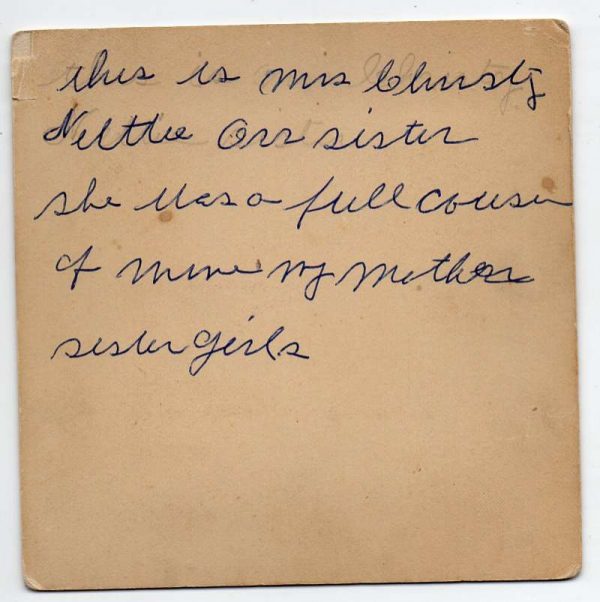 this is mrs Christy
Nelttie Orr sister
she was a full cousin
of mine my mother
sister girls